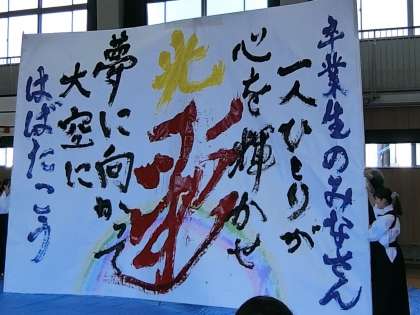 卒業生のみなさん
一人ひとりが
心を輝かせ
光
夢に向かって
大空に
はばたこう